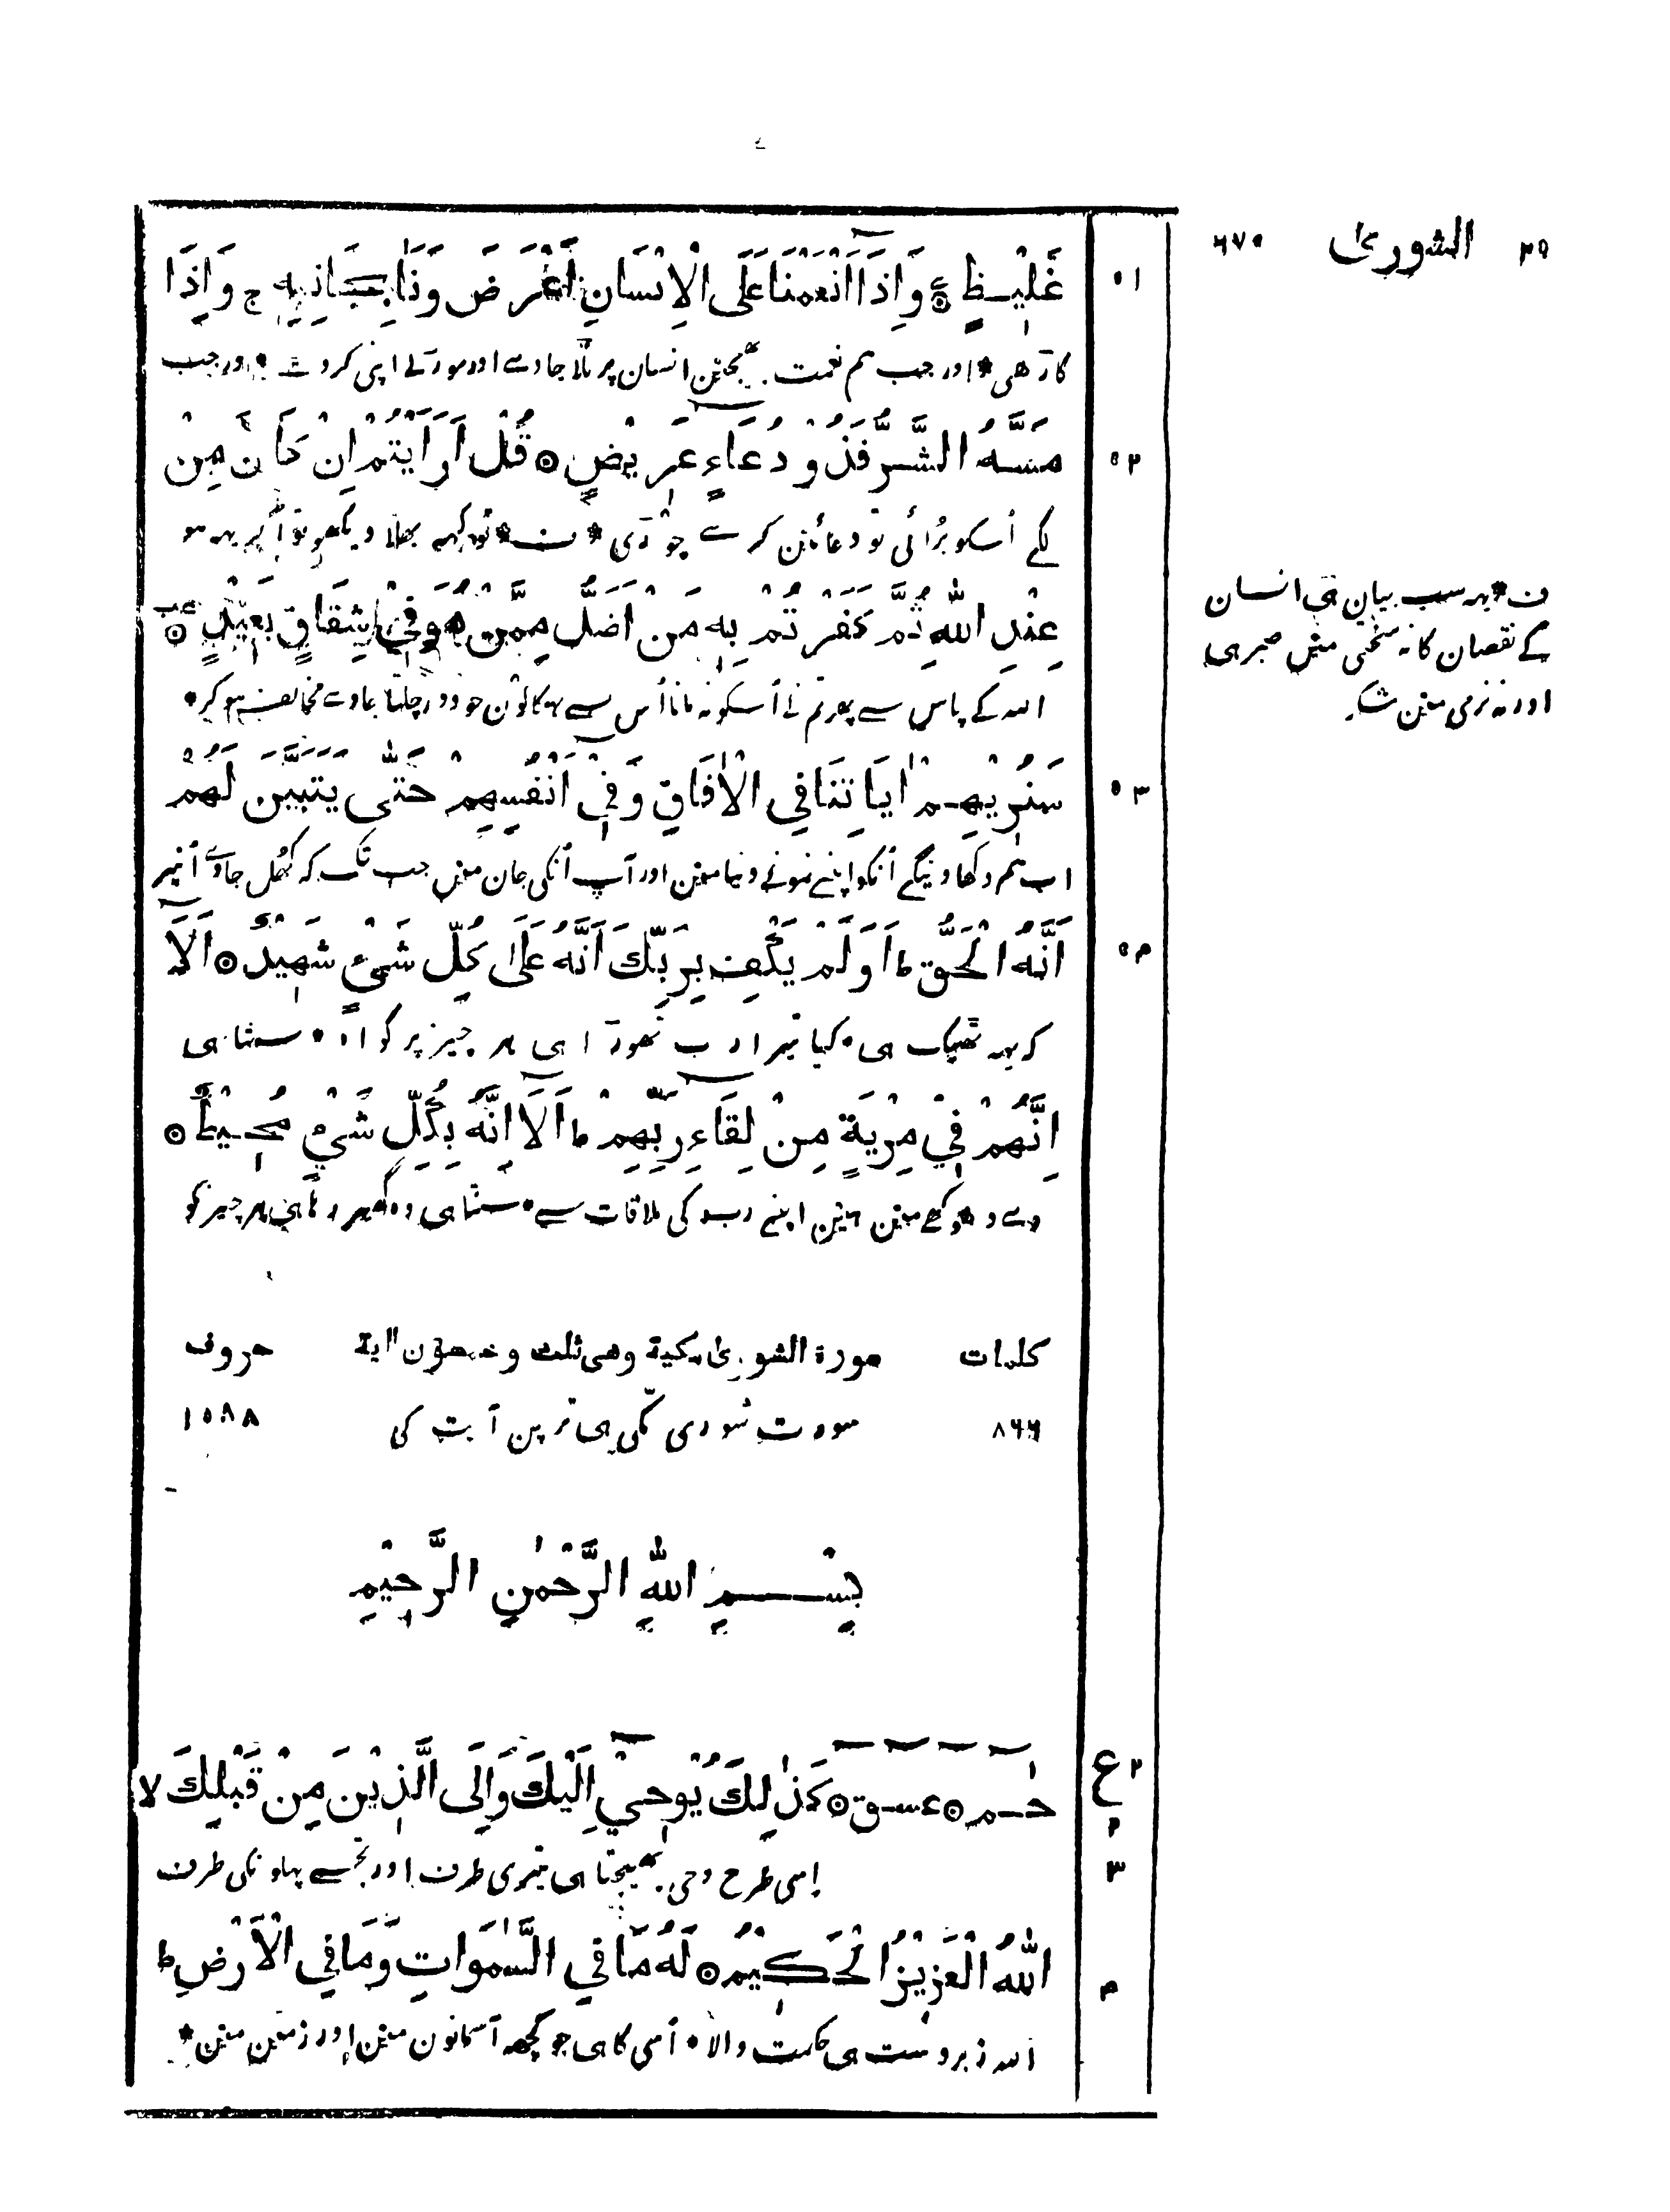 ٢٥ الشوریٰ ٦٧٥
٥١ غَلِيْظٍ ۞ وَاِذَآ اَنْعَمْنَا عَلَى الْاِنْسَانِ اَعْرَضَ وَنَاٰ بِجَانِبِهٖ ج وَاِذَا
گاڑھی * اور جب ہم نعمت بھیجین انسان پر ٹلا جاوے اور موڑلے اپنی کروٹ * اور جب
٥٢ مَسَّهُ الشَّرُّ فَذُوْ دُعَآءٍ عَرِيْضٍ ۞ قُلْ اَرَاَيْتُمْ اِنْ كَانَ مِنْ
لگے اُسکو بُرائی تو دعائین کرے چوڑی * ف * تو کہہ بھلا دیکھو تو اگر یہہ ہو
عِنْدِ اللّٰهِ ثُمَّ كَفَرْتُمْ بِهٖ مَنْ اَضَلُّ مِمَّنْ هُوَ فِيْ شِقَاقٍ بَعِيْدٍ ۞
اللہ کے پاس سے پھر تم نے اُسکو نہ مانا اُس سے بہکا کون جو دور چلتا جاوے مخالف ہوکر *
٥٣ سَنُرِيْهِمْ اٰيَاتِنَا فِي الْاٰفَاقِ وَفِيْٓ اَنْفُسِهِمْ حَتّٰى يَتَبَيَّنَ لَهُمْ
اب ہم دکھاوینگے اُنکو اپنے نمونے دنیا مین اور آپ اُنکی جان مین جب تک کہ کُھل جاوے اُنپر
٥٤ اَنَّهُ الْحَقُّ ط اَوَلَمْ يَكْفِ بِرَبِّكَ اَنَّهٗ عَلٰى كُلِّ شَيْءٍ شَهِيْدٌ ۞ اَلَآ
کہ یہہ ٹھیک ہی * کیا تیرا رب تھوڑا ہی ہر چیز پر گواہ * سنتا ہی
اِنَّهُمْ فِيْ مِرْيَةٍ مِنْ لِقَآءِ رَبِّهِمْ ط اَلَآ اِنَّهٗ بِكُلِّ شَيْءٍ مُحِيْطٌ ۞
وے دھوکھے مین ہین اپنے رب کی ملاقات سے * سنتا ہی وہ گھیر رہا ہی ہر چیز کو
ف * یہہ سب بیان ہی انسان
کے نقصان کا نہ سختی مین صبر ہی
اور نہ نرمی مین شکر
کلمات سورة الشوریٰ مكية وهي ثلث وخمسون اٰية حروف
٨٦٦ سورت شوری مکّی ہی ترپن آیت کی ١٥٨٨
بِسْمِ اللّٰهِ الرَّحْمٰنِ الرَّحِيْمِ
ع ٢ ٢ حٰـمۤ ۞ عۤسۤقۤ ۞ كَذٰلِكَ يُوْحِيْٓ اِلَيْكَ وَاِلَى الَّذِيْنَ مِنْ قَبْلِكَ لا
٣ اِسی طرح وحی بھیجتا ہی تیری طرف اور تجسے پہلونکی طرف
٤ اللّٰهُ الْعَزِيْزُ الْحَكِيْمُ ۞ لَهٗ مَا فِي السَّمٰوَاتِ وَمَا فِي الْاَرْضِ ط
اللہ زبردست ہی حکمت والا * اُسی کا ہی جو کچھہ آسمانون مین اور زمین مین *